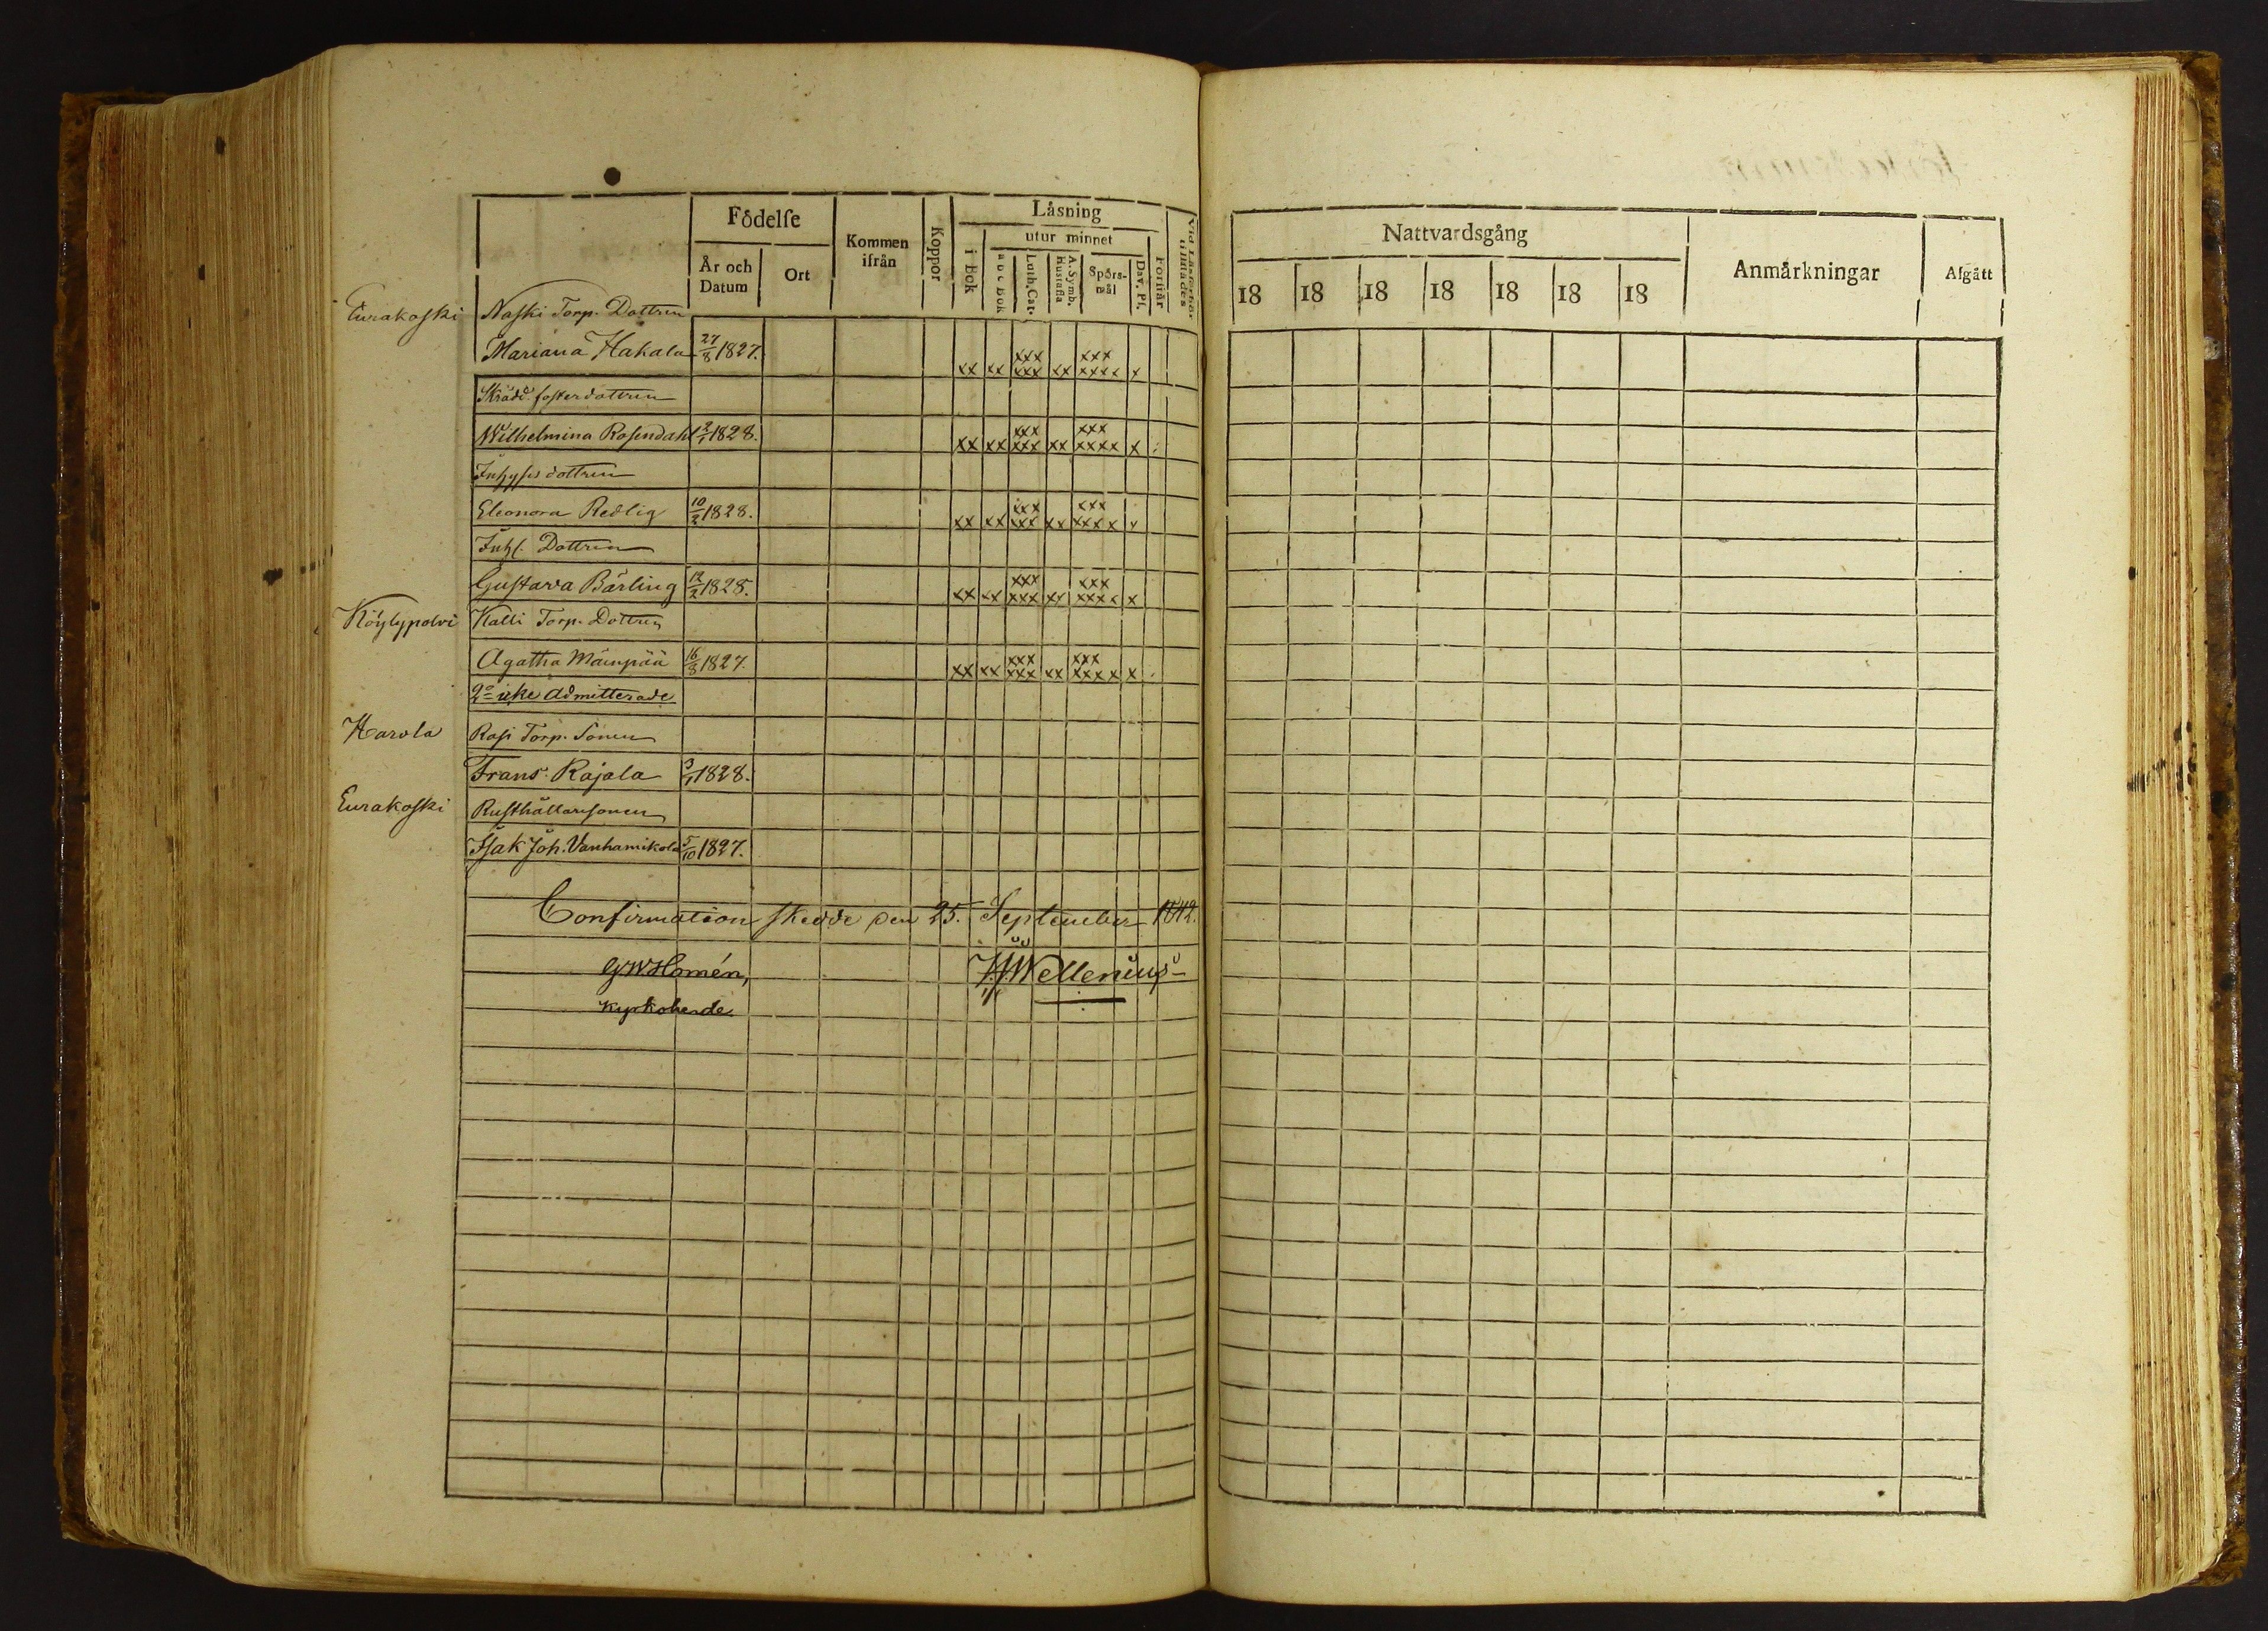 Födelse
Kommen ifrån
Koppor
Läsning
utur minnet
År och Datum
Ort
i Bok
a b c Bok
Luth. Cat.
A. Symb. Hustafla
Spörsmål
Dav. Ps.
Förstår
Vid Läsförhör tilstädes
Eurakoski Naski Torp. Dottren
Mariana Hakala 27/8 1827. xx xx xxx xxx xx xxx xxxx x
Skrädd. fosterdottren
Wilhelmina Rosendahl 2/1 1828. xx xx xxx xxx xx xxx xxxx x
Inhyses dottren
Eleonora Redlig 10/2 1828. xx xx xxx xxx xx xxx xxxx x
Inhs. Dottren
Gustava Bärling 12/2 1828. xx xx xxx xxx xx xxx xxxx x
Köylypolvi Kalli Torp. Dottren
Agatha Mäenpää 16/8 1827. xx xx xxx xxx xx xxx xxxx x
2:o icke admitterade
Harola Rasi Torp. Sonen
Frans Rajala 3/1 1828.
Eurakoski Rusthållaresonen
Isak Joh. Vanhamikola 5/10 1827.
Confirmation skedde den 25. September 1842.
GWHomén, Wellenius
Kyrkoherde
Nattvardsgång
Anmärkningar
Afgått
18 18 18 18 18 18 18